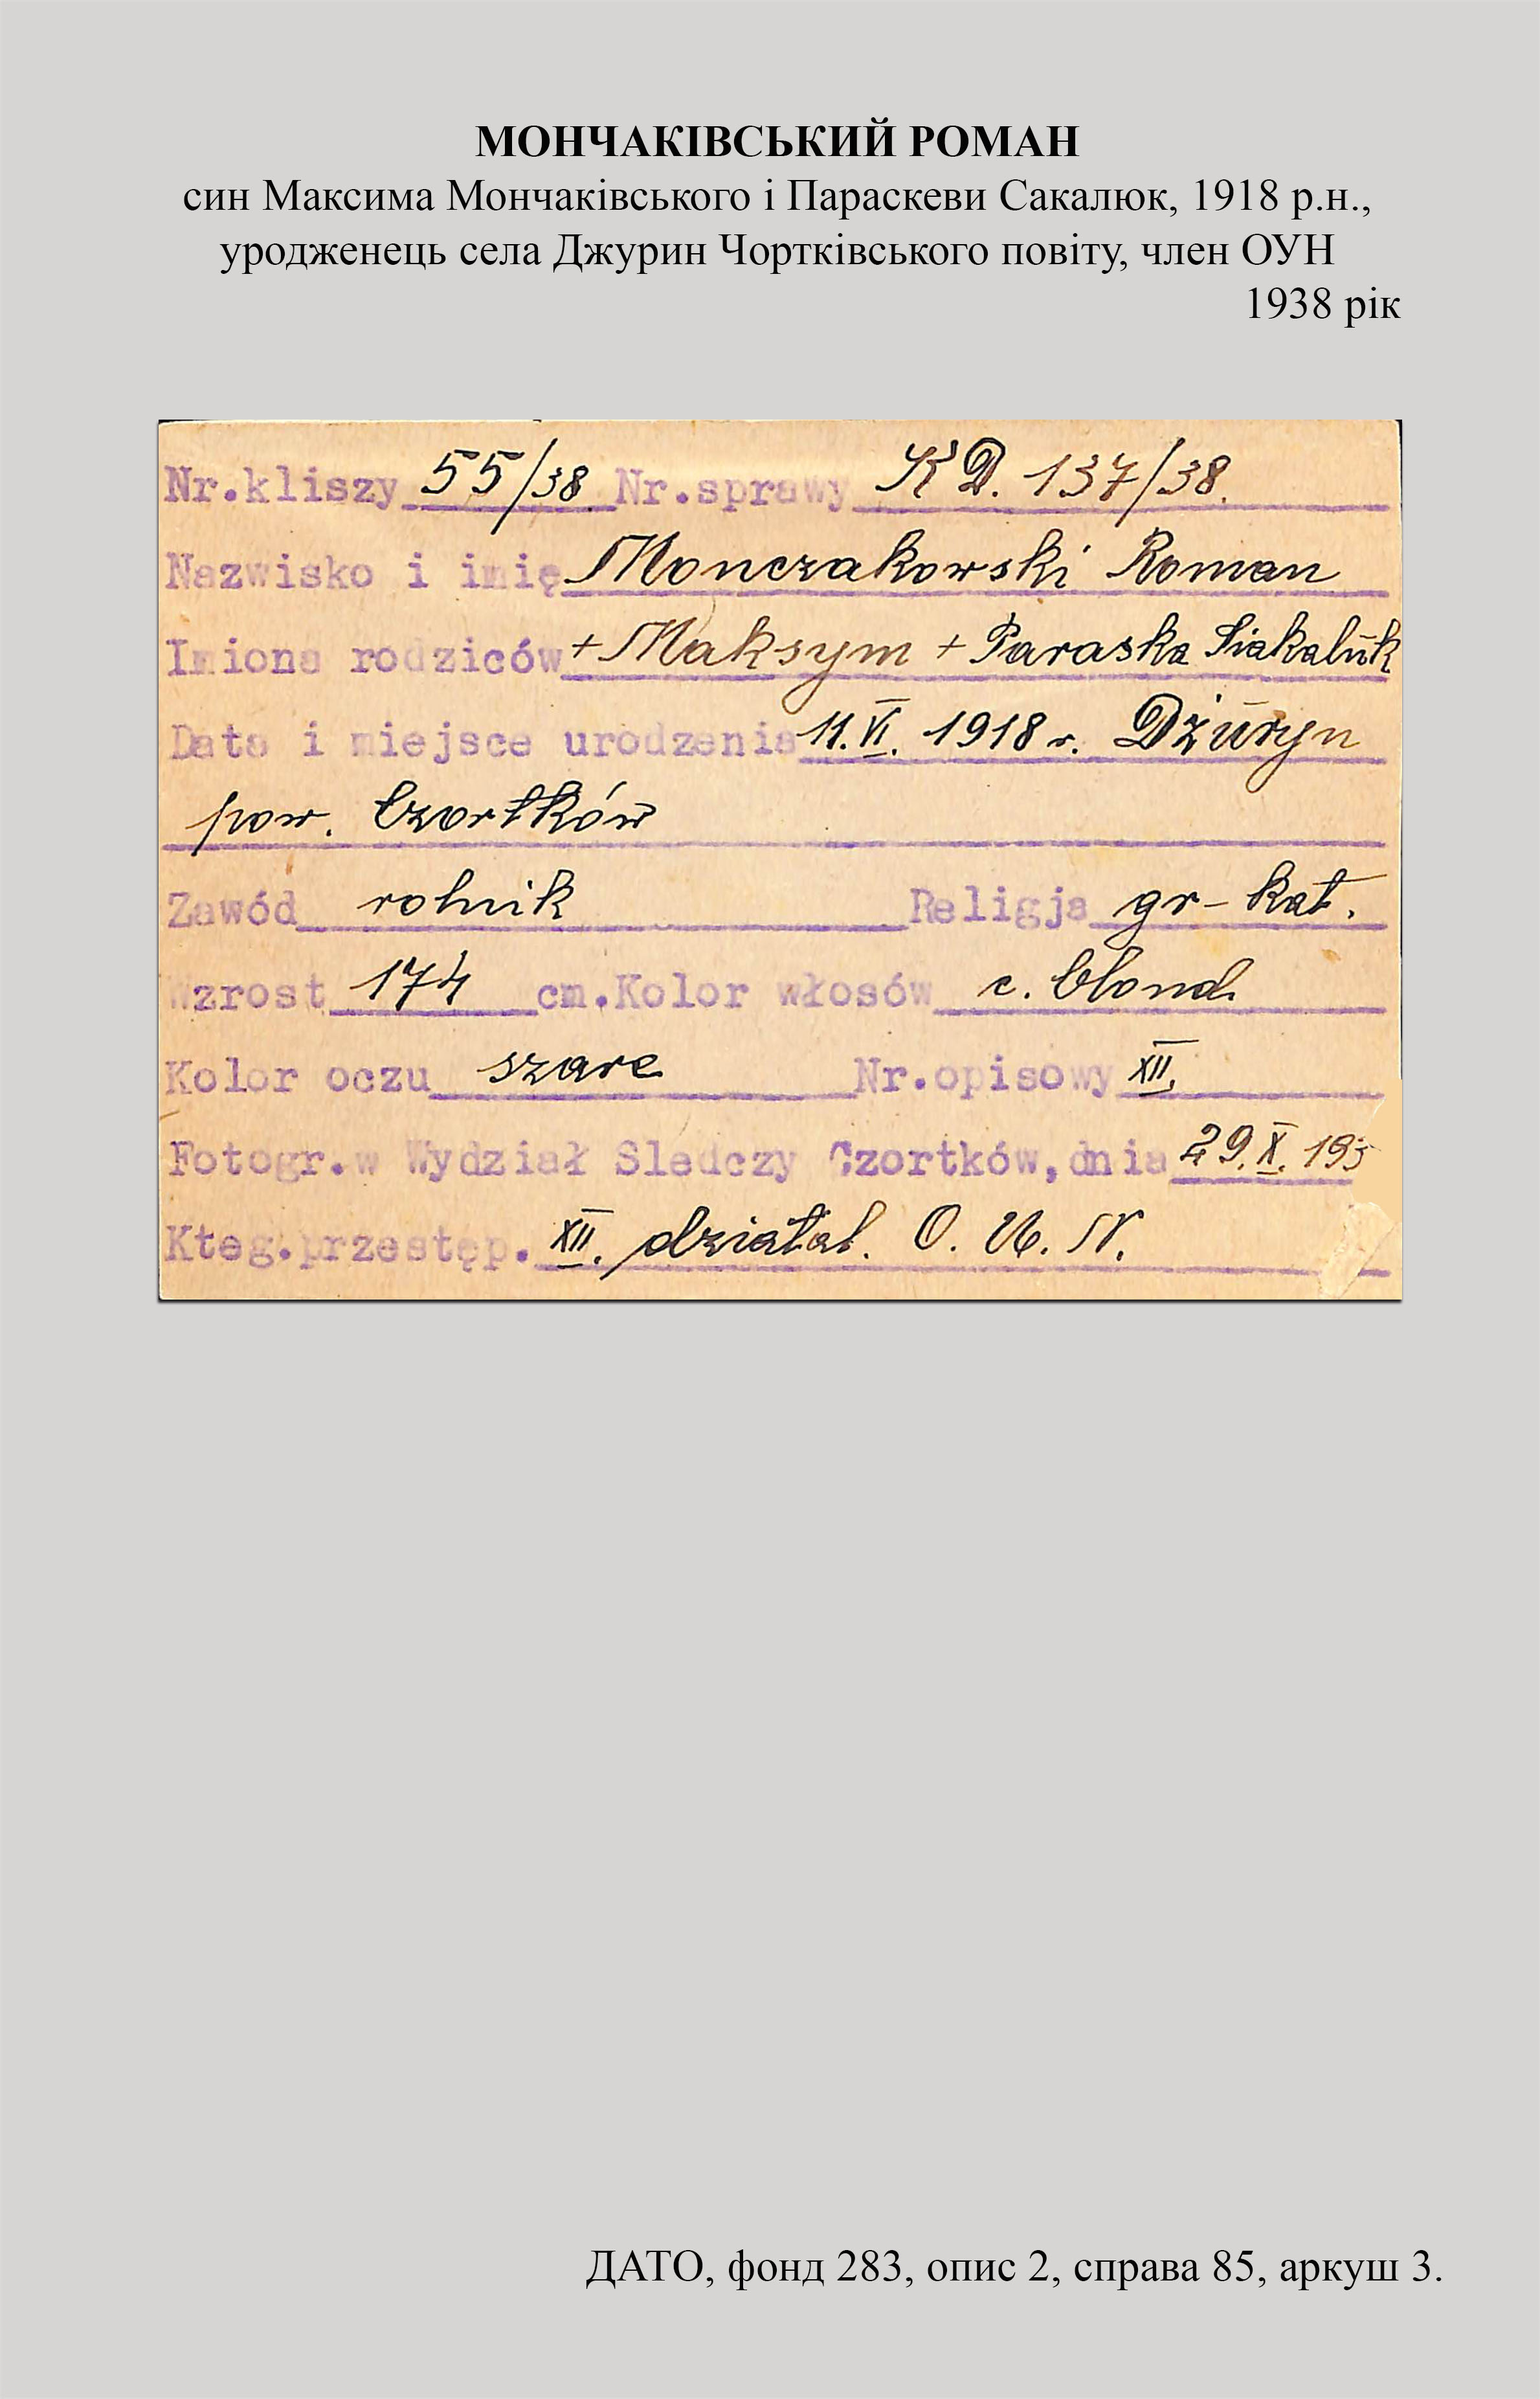 МОНЧАКІВСЬКИЙ РОМАН
син Максима Мончаківського і Параскеви Сакалюк, 1918 р.н.,
уродженець села Джурин Чортківського повіту, член ОУН
1938 рік
Nr.kliszy 55/38 Nr.sprawy KD. 137/38.
Nazwisko i imię Monczakowski Roman
Imiona rodziców + Maksym + Paraska Siakaluk
Data i miejsce urodzenia 11.VI. 1918 r. Dżuryn
pow. Czortków
Zawód rolnik Religja gr-kat.
Wzrost 174 cm. Kolor włosów c. blond.
Kolor oczu szare Nr.opisowy XII.
Fotogr.w Wydział Sledczy Czortków, dnia 29.X. 193
Kteg.przestęp. XII. działal. O. U. N.
ДАТО, фонд 283, опис 2, справа 85, аркуш 3.